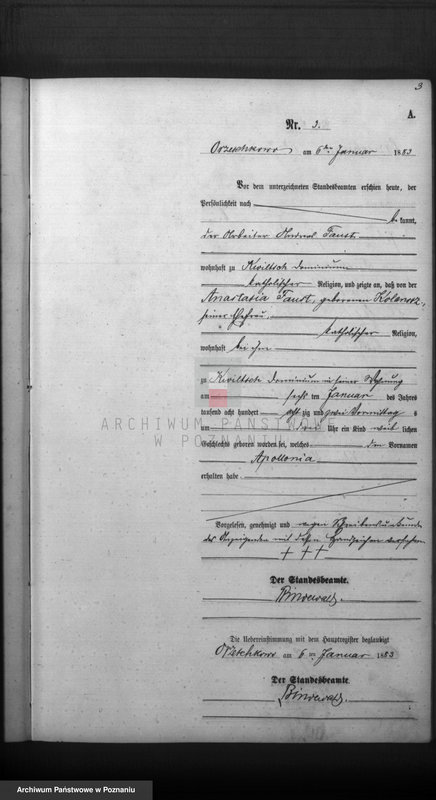 3
A.
Nr. 3.
Orzeschkowo am 6ten Januar 1883
Vor dem unterzeichneten Standesbeamten erschien heute, der
Persönlichkeit nach
be kannt,
der Arbeiter Faust
wohnhaft zu Kwiltsch Dominium
katholischer Religion, und zeigte an, daß von der
Anastasia Faust, geborenen
seiner Ehefrau,
katholischer Religion,
wohnhaft bei ihm
zu Kwiltsch Dominium in seiner Wohnung
am sechs ten Januar des Jahres
tausend acht hundert acht zig und drei Vormittag s
um drei Uhr ein Kind weib lichen
Geschlechts geboren worden sei, welches den Vornamen
Apollonia
erhalten habe.
ARCHIWUM PAŃSTWOWE
W POZNANIU
Vorgelesen, genehmigt und wegen Schreibensunkunde
des Anzeigenden mit dessen Handzeichen versehen.
+ + +
Der Standesbeamte.
Die Uebereinstimmung mit dem Hauptregister beglaubigt
Orzeschkowo am 6ten Januar 1883
Der Standesbeamte.
Archiwum Państwowe w Poznaniu